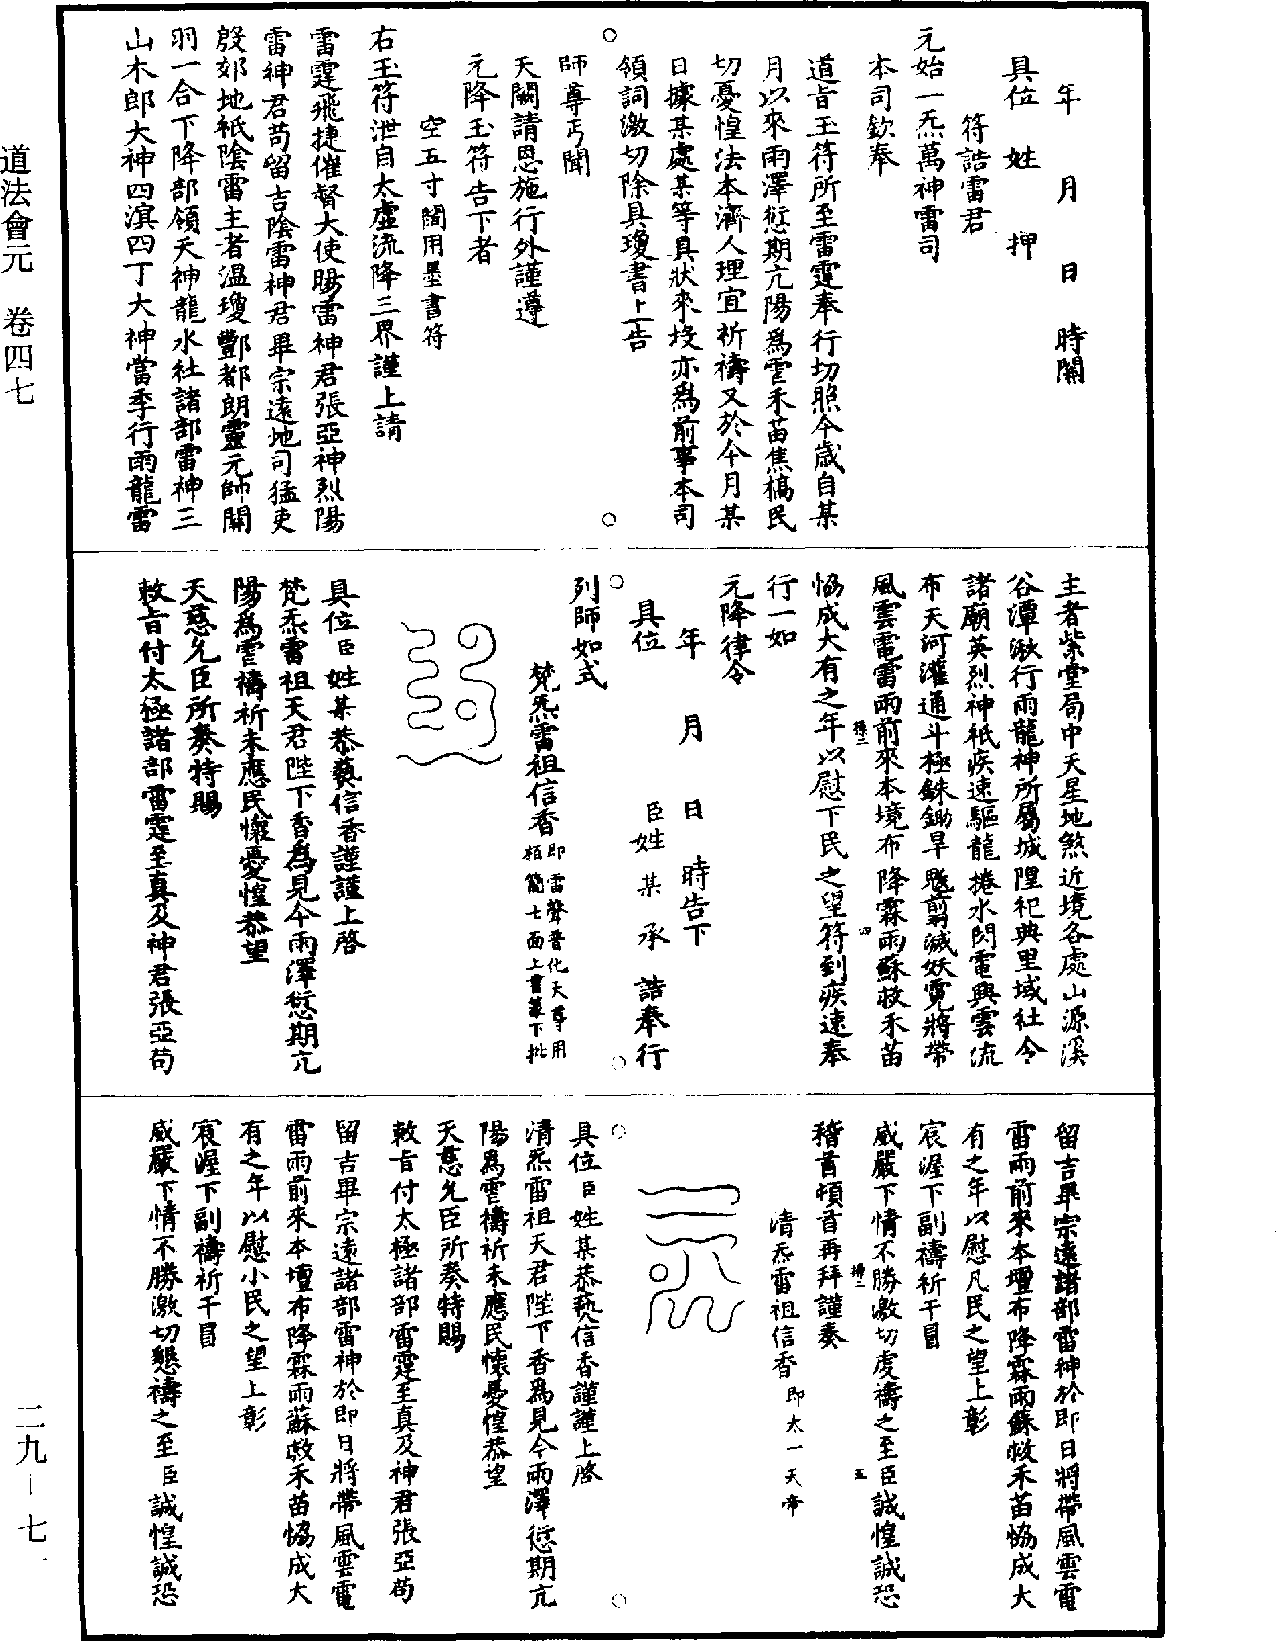 年　月　日　時關
具位　姓　押
符誥雷君
元始一炁萬神雷司
本司欽奉
道旨玉符所至雷霆奉行切照今歲自某
月以來雨澤愆期亢陽爲雪禾苗焦槁民
切憂惶法本濟人理宜祈禱又於今月某
日據某處某等具狀來投亦爲前事本司
領詞激切除具瓊書上告
師尊丐聞
天闕請恩施行外謹遵
元降玉符告下者
空五寸闊用墨書符
右玉符泄自太虛流降三界謹上請
雷霆飛捷催督大使暘雷神君張亞神烈陽
雷神君苟留吉陰雷神君畢宗遠地司猛吏
殷郊地祇陰雷主者溫瓊酆都朗靈元帥關
羽一合下降部領天神龍水社諸部雷神三
山木郎大神四溟四丁大神當季行雨龍雷
主者紫堂局中天星地煞近境各處山源溪
谷潭湫行雨龍神所屬城隍祀典里域社令
諸廟英烈神祇疾速驅龍捲水閃電興雲流
布天河灌通斗極銖鋤旱魃翦滅妖霓將帶
風雲電雷雨前來本境布降霖雨蘇救禾苗
協成大有之年以慰下民之望符到疾速奉
行一如
元降律令
年　月　日　時告下
具位　臣姓某承誥奉行
列師如式
梵炁雷祖信香即雷聲普化天尊用
栢簡七面上書篆下批
具位臣姓某恭爇信香謹謹上啓
梵炁雷祖天君陛下香爲見今雨澤愆期亢
陽爲雪禱祈未應民懷憂惶恭望
天慈允臣所奏特賜
敕旨付太極諸部雷霆至真及神君張亞苟
留吉畢宗遠諸部雷神於即日將帶風雲電
雷雨前來本壇布降霖雨蘇救禾苗協成大
有之年以慰凡民之望上彰
宸渥下副禱祈干冒
威嚴下情不勝激切虔禱之至臣誠惶誠恐
稽首頓首再拜謹奏
清炁雷祖信香即太一天帝
具位臣姓某恭爇信香謹謹上啓
清炁雷祖天君陛下香爲見今雨澤愆期亢
陽爲雪禱祈未應民懷憂惶恭望
天慈允臣所奏特賜
敕旨付太極諸部雷霆至真及神君張亞苟
留吉畢宗遠諸部雷神於即日將帶風雲電
雷雨前來本壇布降霖雨蘇救禾苗協成大
有之年以慰小民之望上彰
宸渥下副禱祈干冒
威嚴下情不勝激切懇禱之至臣誠惶誠恐
道法會元　卷四七
二九－七